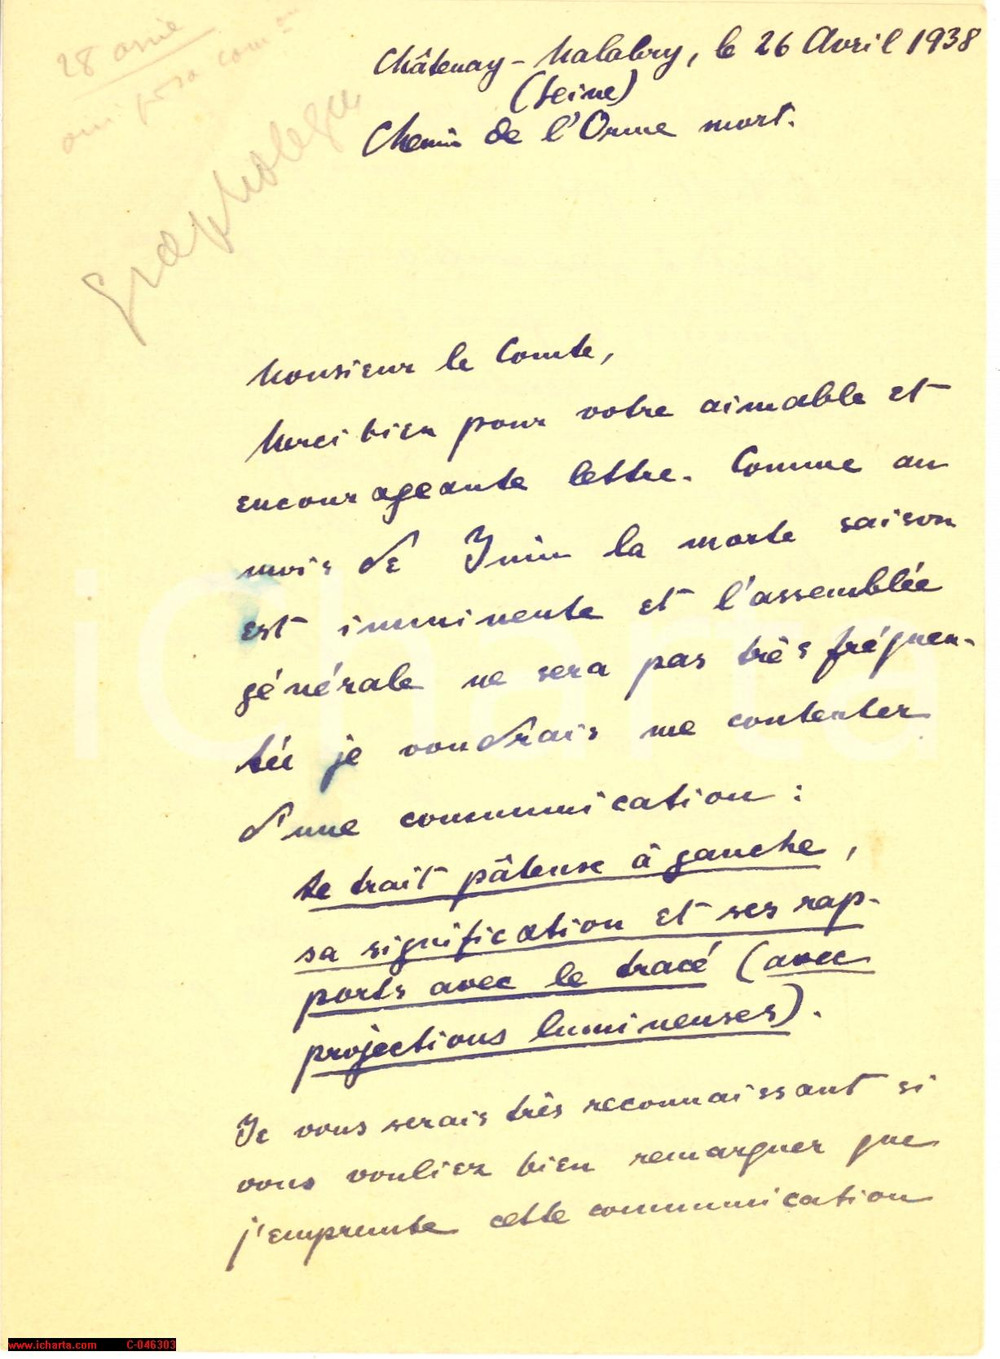 28
Graphologue
Châtenay-Malabry, le 26 Avril 1938
(Seine)
Chemin de l'Orme mort.
Monsieur le Comte,
Merci bien pour votre aimable et
encourageante lettre. Comme au
mois de Juin la morte saison
est imminente et l'assemblée
générale ne sera pas très fréquen-
tée je voudrais me contenter
d'une communication :
Le trait pâteux à gauche,
sa signification et ses rap-
ports avec le tracé (avec
projections lumineuses).
Je vous serais très reconnaissant si
vous vouliez bien remarquer que
j'emprunte cette communication
iCharta
www.icharta.com C-046303